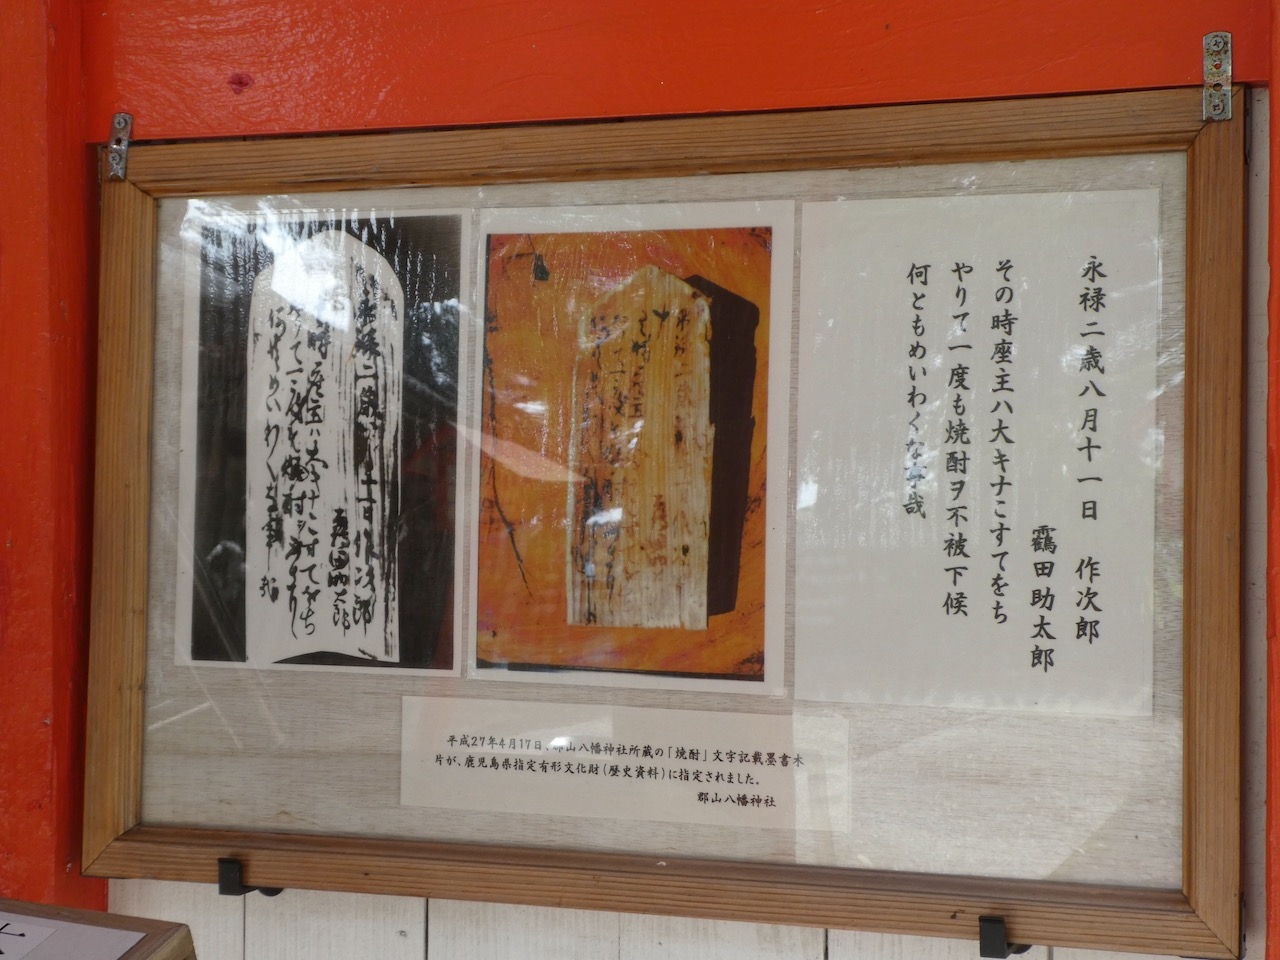 永禄二歳八月十一日　作次郎
靏田助太郎
その時座主ハ大キナこすてをち
やりて一度も焼酎ヲ不被下候
何ともめいわくな事哉
平成27年4月17日、郡山八幡神社所蔵の「焼酎」文字記載墨書木
片が、鹿児島県指定有形文化財(歴史資料)に指定されました。
郡山八幡神社